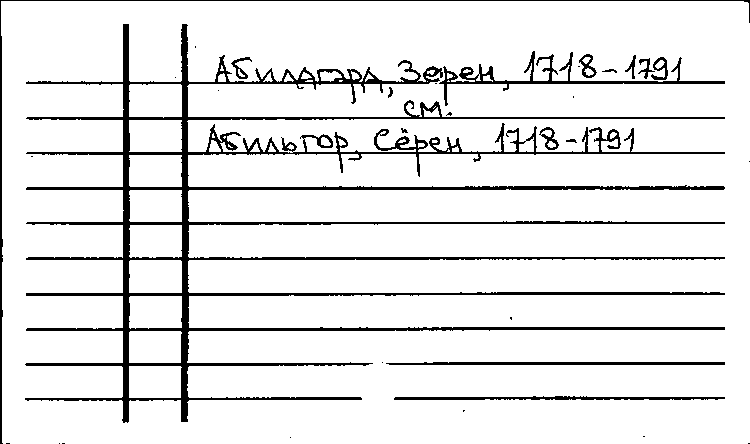 Абилдгард, Зерен, 1718-1791
см.
Абильгор, Сёрен, 1718-1791